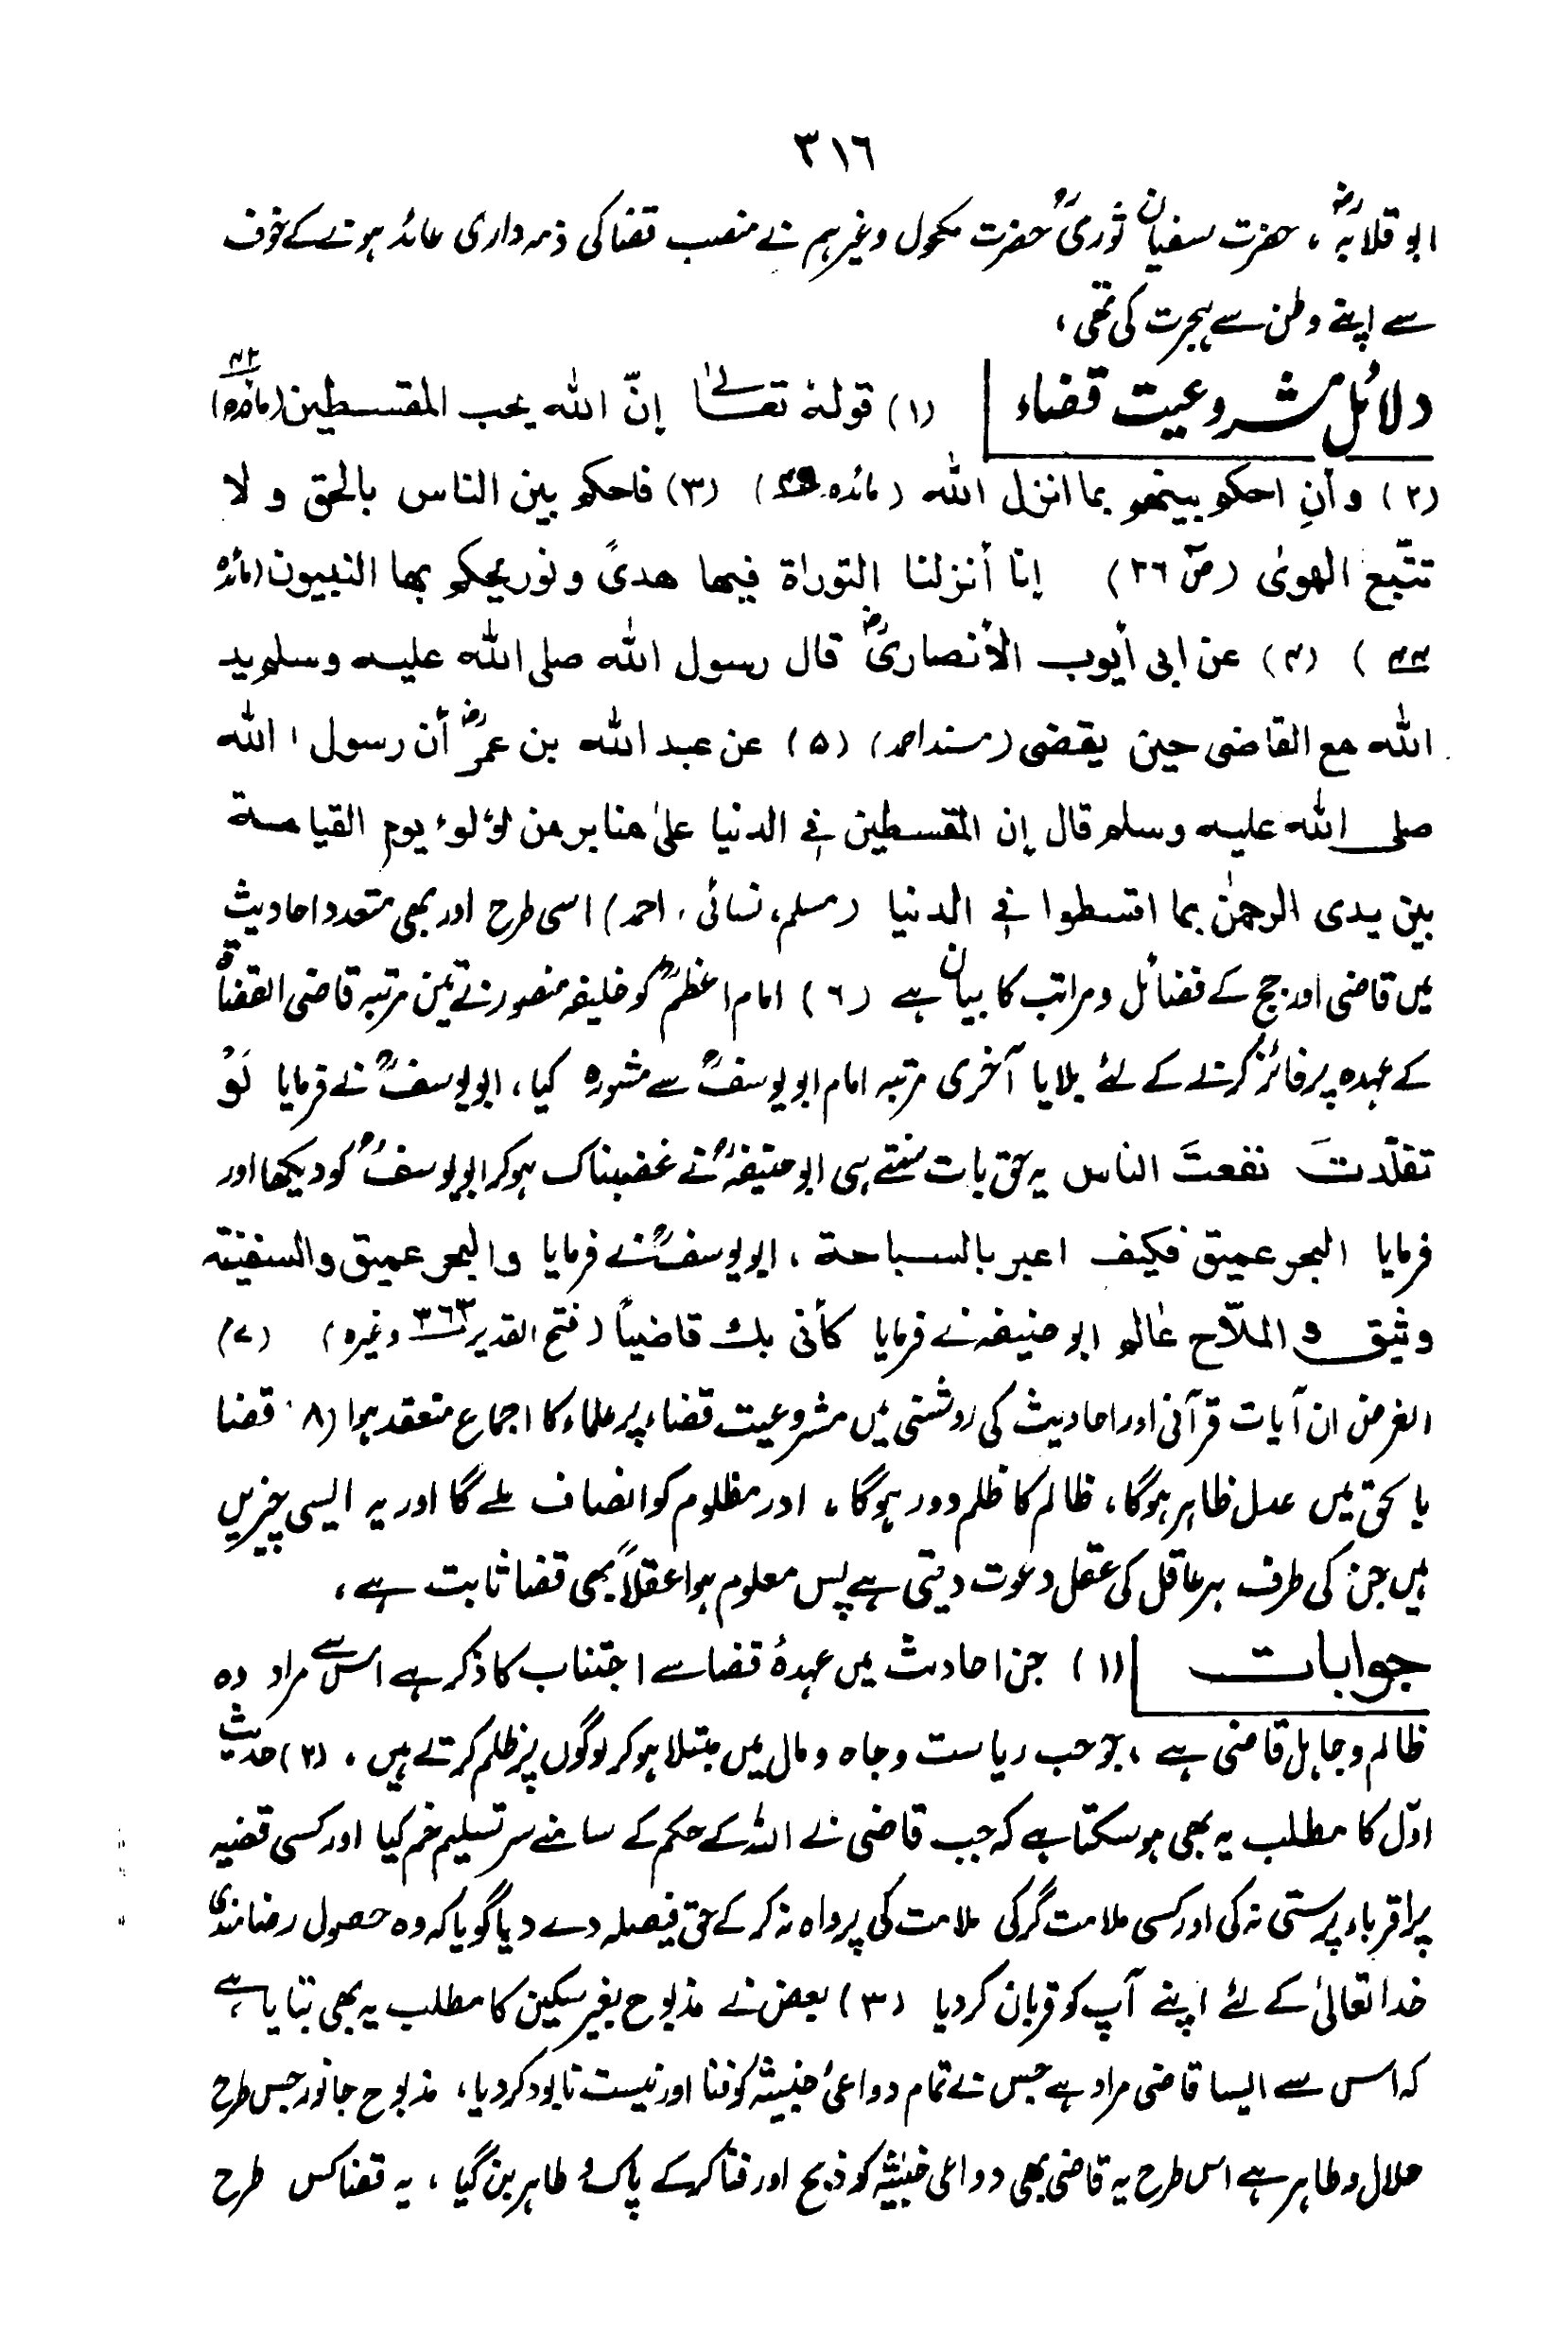 ٣١٦
ابو قلابہؓ ، حضرت سفیان ثوریؒ حضرت مکحول وغیرہم نے منصب قضا کی ذمہ داری عائد ہونے کے خوف
سے اپنے وطن سے ہجرت کی تھی ،
دلائل مشروعیت قضاء (١) قولهٗ تعالیٰ إنّ الله يحب المقسطين (مائدہ ۴۲)
(٢) وأنِ احكم بينهم بما انزل الله (مائدہ ۴۹) (٣) فاحكم بين الناس بالحق و لا
تتّبع الهوىٰ (صٓ ٢٦) إنا أنزلنا التوراة فيها هدىً و نور يحكم بها النبيون (مائدہ
۴۴) (۴) عن ابی أيوب الأنصاریؓ قال رسول الله صلى الله عليه وسلم يد
الله مع القاضی حين يقضی (مسند احمد) (۵) عن عبد الله بن عمرؓ أن رسول الله
صلی الله عليه وسلم قال إن المقسطين فی الدنيا علیٰ منابر من لؤلوء يوم القيامة
بين يدی الرحمٰن بما اقسطوا فی الدنيا (مسلم، نسائی، احمد) اسی طرح اور بھی متعدد احادیث
میں قاضی اور جج کے فضائل و مراتب کا بیان ہے (٦) امام اعظمؒ کو خلیفہ منصور نے تین مرتبہ قاضی القضاۃ
کے عہدہ پر فائز کرنے کے لئے بلایا آخری مرتبہ امام ابو یوسفؒ سے مشورہ کیا ، ابو یوسفؒ نے فرمایا لَوْ
تقلّدتَ نفعتَ الناس یہ حق بات سنتے ہی ابو حنیفہؒ نے غضبناک ہو کر ابو یوسفؒ کو دیکھا اور
فرمایا البحر عميق فكيف اعبر بالسباحة ، ابو یوسفؒ نے فرمایا والبحر عميق والسفينة
وثيق و الملّاح عالم ابو حنیفہ نے فرمایا كأنی بك قاضياً (فتح القدیر ٣٦٣ وغیرہ) (٧)
الغرض ان آیات قرآنی اور احادیث کی روشنی میں مشروعیت قضاء پر علماء کا اجماع منعقد ہوا (٨) قضا
بالحق میں عدل ظاہر ہوگا ، ظالم کا ظلم دور ہوگا ، اور مظلوم کو انصاف ملے گا اور یہ ایسی چیزیں
ہیں جن کی طرف ہر عاقل کی عقل دعوت دیتی ہے پس معلوم ہوا عقلاً بھی قضا ثابت ہے ،
جوابات (١) جن احادیث میں عہدۂ قضا سے اجتناب کا ذکر ہے اس سے مراد وہ
ظالم و جاہل قاضی ہے ، جو حب ریاست و جاہ و مال میں مبتلا ہو کر لوگوں پر ظلم کرتے ہیں ، (٢) حدیث
اوّل کا مطلب یہ بھی ہو سکتا ہے کہ جب قاضی نے اللہ کے حکم کے سامنے سر تسلیم خم کیا اور کسی قضیہ
پر اقرباء پرستی نہ کی اور کسی ملامت گر کی ملامت کی پرواہ نہ کر کے حق فیصلہ دے دیا گویا کہ وہ حصول رضامندی
خدا تعالیٰ کے لئے اپنے آپ کو قربان کر دیا (٣) بعض نے مذبوح بغیر سکین کا مطلب یہ بھی بتایا ہے
کہ اس سے ایسا قاضی مراد ہے جس نے تمام دواعیٔ خبیثہ کو فنا اور نیست نابود کر دیا ، مذبوح جانور جس طرح
حلال و طاہر ہے اس طرح یہ قاضی بھی دواعی خبیثہ کو ذبح اور فنا کر کے پاک و طاہر بن گیا ، یہ قضا کس طرح